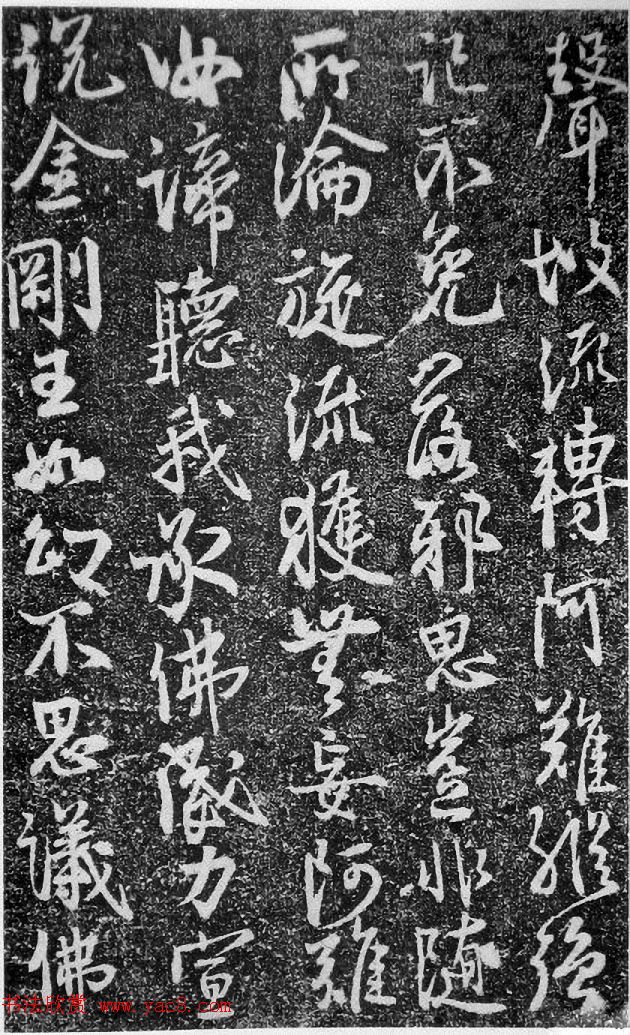 聲故流轉阿難縱強
記不免落邪思豈非隨
所淪旋流獲無妄阿難
汝諦聽我承佛威力宣
說金剛王如幻不思議佛
书法欣赏 www.yac8.com